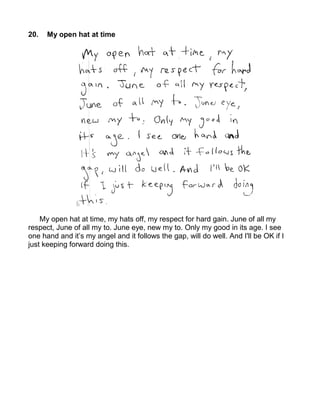 20. My open hat at time
My open hat at time, my
hats off, my respect for hard
gain. June of all my respect,
June of all my to. June eye,
new my to. Only my good in
its age. I see one hand and
It's my angel and it follows the
gap, will do well. And I'll be OK
if I just keeping forward doing
this.
My open hat at time, my hats off, my respect for hard gain. June of all my
respect, June of all my to. June eye, new my to. Only my good in its age. I see
one hand and it's my angel and it follows the gap, will do well. And I'll be OK if I
just keeping forward doing this.